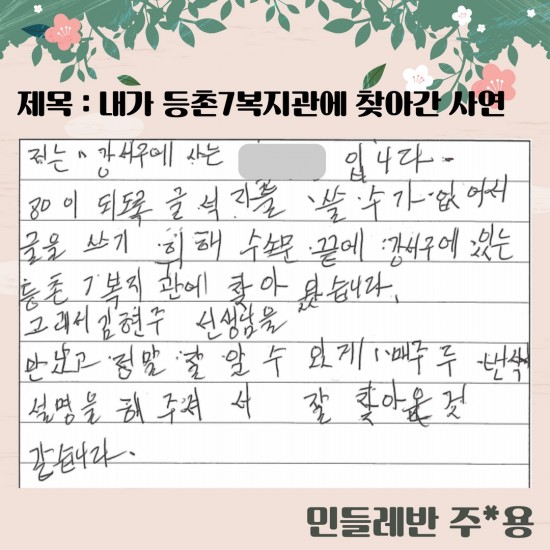 제목 : 내가 등촌7복지관에 찾아간 사연
저는 강서구에 사는 입니다.
80이 되도록 글 석 자를 쓸 수가 없어서
글을 쓰기 위해 수소문 끝에 강서구에 있는
등촌7복지관에 찾아 왔습니다.
그래서 김현주 선생님을
만났고 정말 잘 알 수 있게 매주 두 번씩
설명을 해 주셔서 잘 찾아온 것
같습니다.
민들레반 주*용